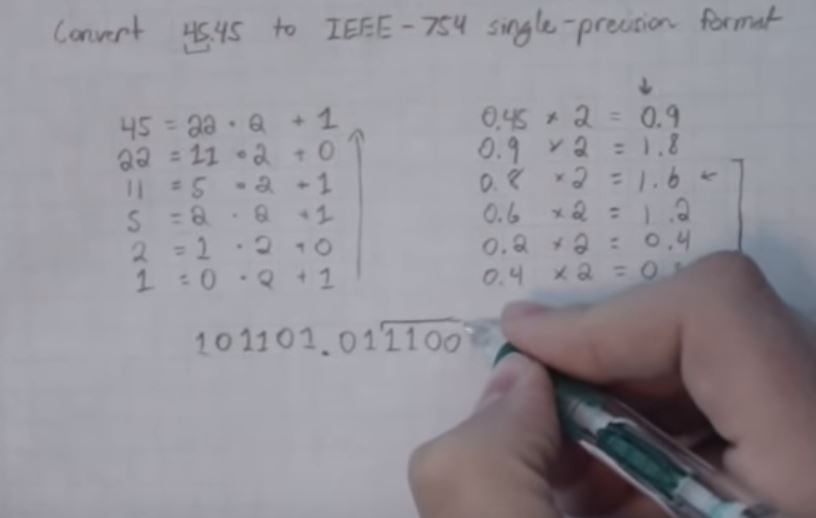 Convert 45.45 to IEEE-754 single-precision format
45 = 22 · 2 + 1
22 = 11 · 2 + 0
11 = 5 · 2 + 1
5 = 2 · 2 + 1
2 = 1 · 2 + 0
1 = 0 · 2 + 1
0.45 × 2 = 0.9
0.9 × 2 = 1.8
0.8 × 2 = 1.6
0.6 × 2 = 1.2
0.2 × 2 = 0.4
0.4 × 2 = 0.
101101.011100